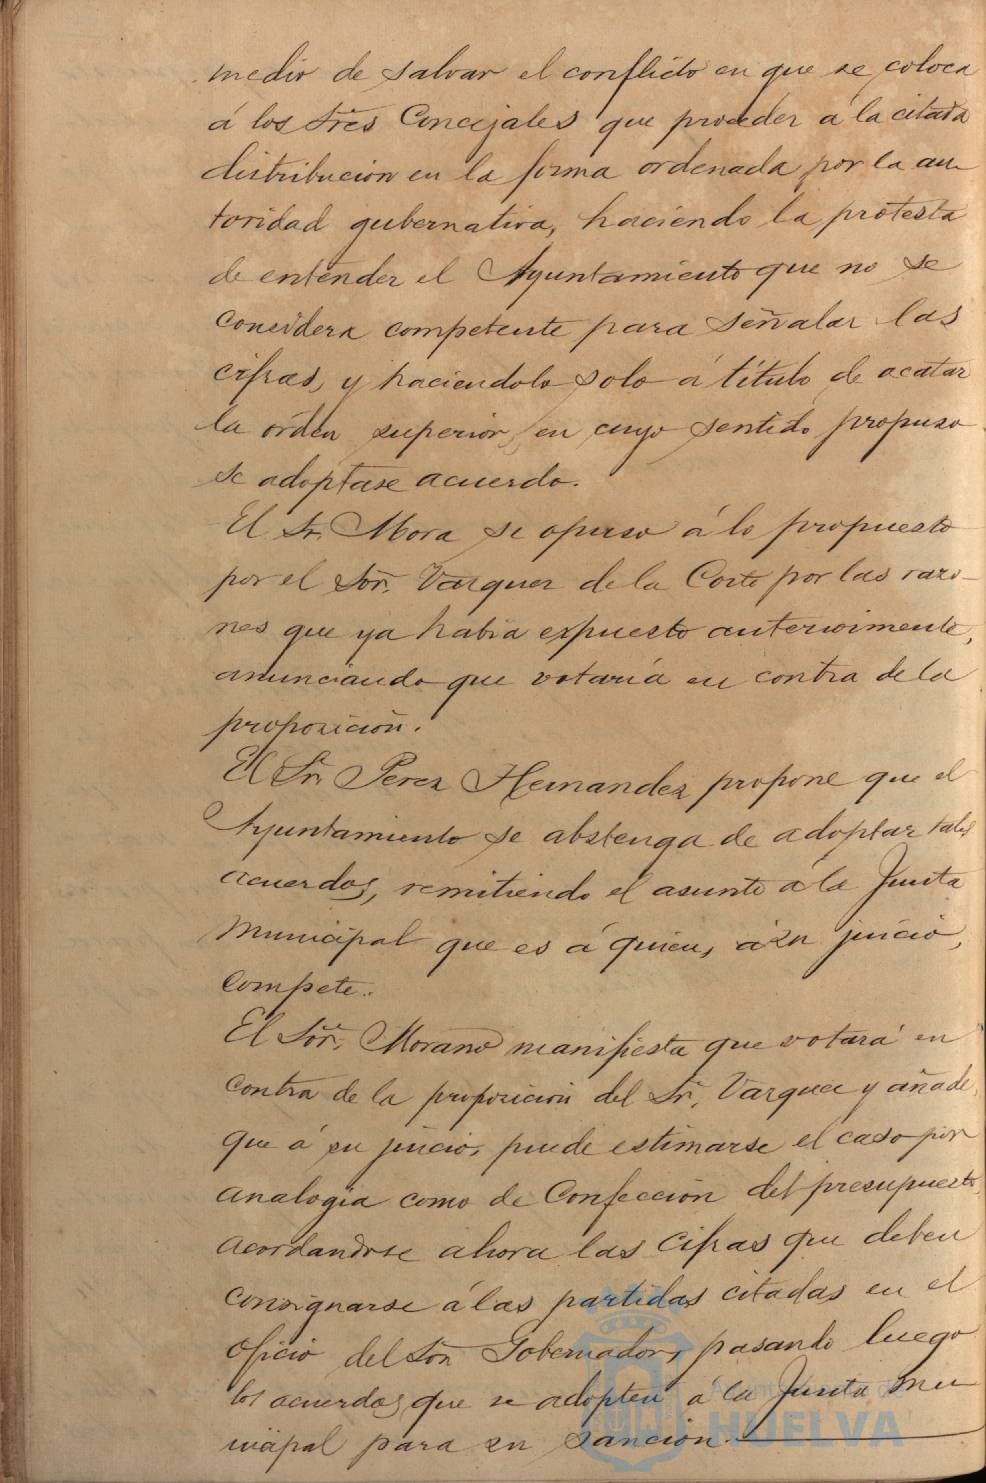 medio de salvar el conflicto en que se coloca
á los Sres Concejales que proceder á la citada
distribucion en la forma ordenada por la au-
toridad gubernativa, haciendo la protesta
de entender el Ayuntamiento que no se
considera competente para señalar las
cifras, y haciendolo solo á título de acatar
la orden superior, en cuyo sentido propuso
se adoptase acuerdo.
El Sr. Mora se opuso á lo propuesto
por el Sor. Vazquez de la Corte por las razo-
nes que ya habia expuesto anteriormente,
anunciando que votaría en contra de la
proposición.
El Sr. Perez Hernandez propone que el
Ayuntamiento se abstenga de adoptar tales
acuerdos, remitiendo el asunto á la Junta
Municipal que es á quien, á su juicio,
compete.
El Sor. Morano manifiesta que votará en
contra de la proposicion del Sr. Vazquez y añade
que á su juicio, puede estimarse el caso por
analogia como de Confección del presupuesto,
acordandose ahora las cifras que deben
consignarse á las partidas citadas en el
oficio del Sor Gobernador, pasando luego
los acuerdos que se adopten á la Junta mu-
nicipal para su sanción.
Ayuntamiento de
HUELVA